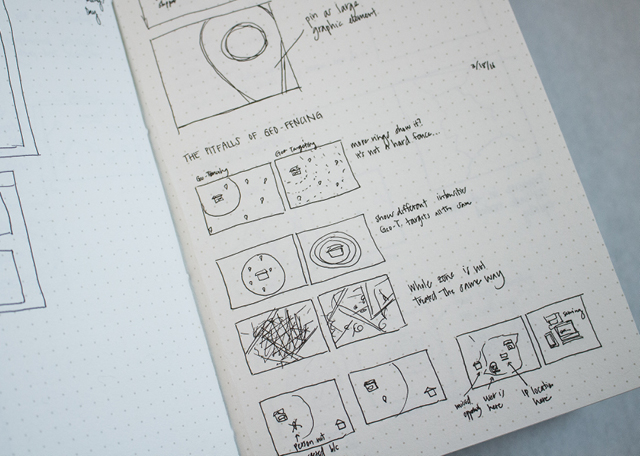 day
pin as large
graphic element
2/18/16
THE PITFALLS OF GEO-FENCING
Geo-Fencing
Geo-Targeting
more rings show it?
it's not a hard fence...
show different intensities
Geo-T. targets with
Whole zone is not
treated the same way
person not
b/c
missed
oppty
user is
here
IP location
here